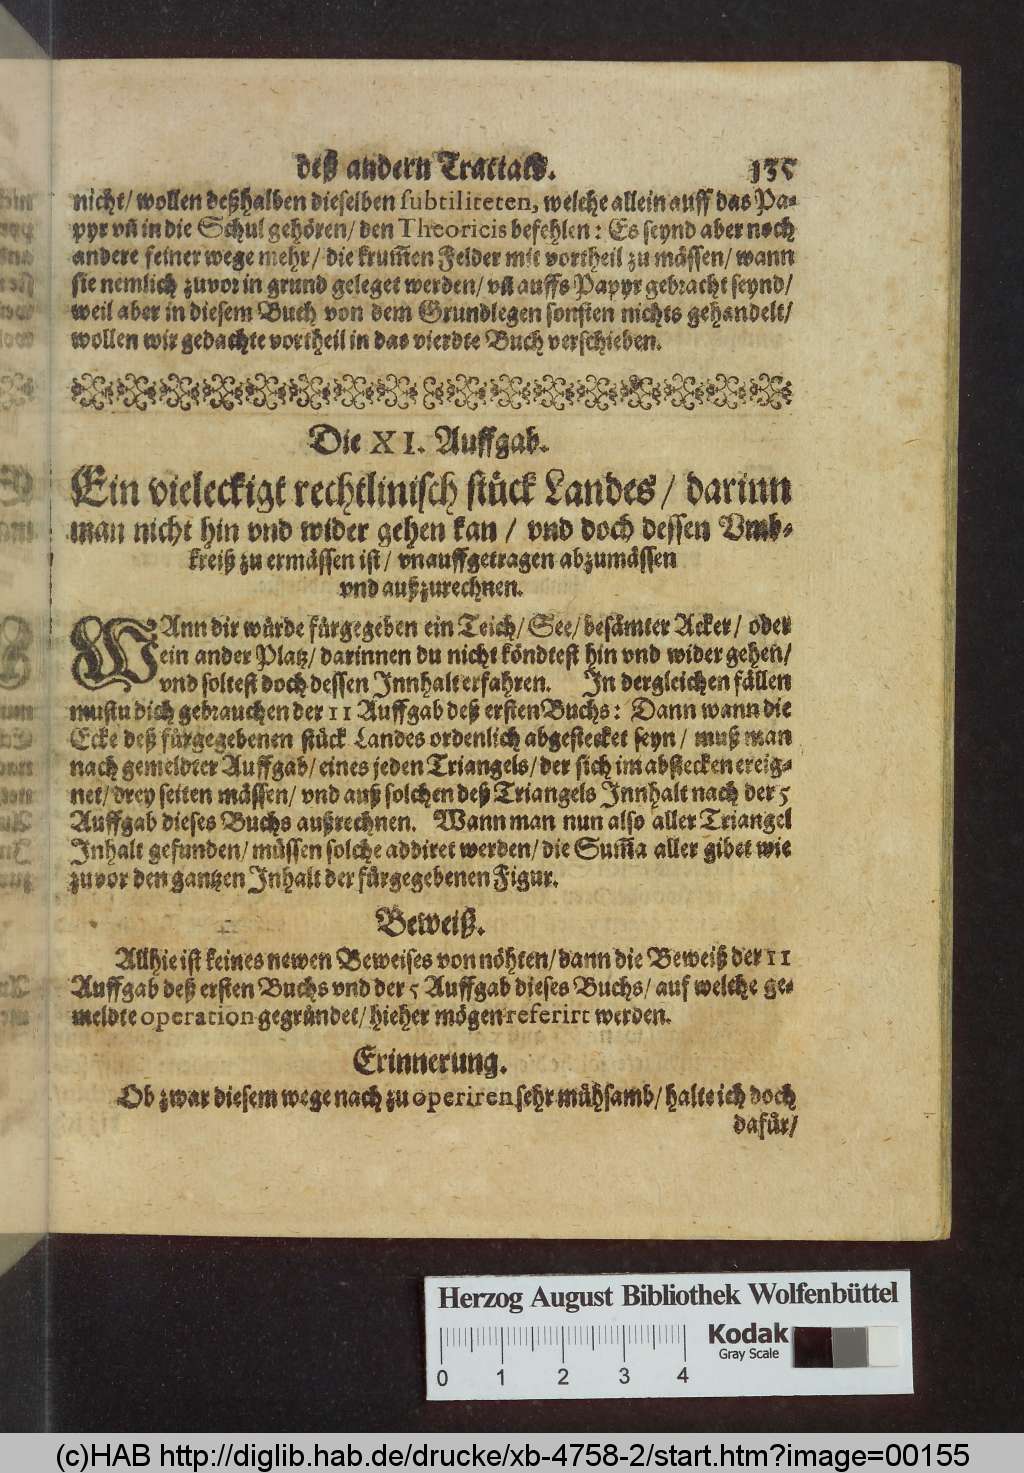 deß andern Tractats. 135
nicht/ wollen deßhalben dieselben subtiliteten, welche allein auff das Pa-
pyr vñ in die Schul gehören/ den Theoricis befehlen: Es seynd aber noch
andere feiner wege mehr/ die krum̃en Felder mit vortheil zu mässen/ wann
sie nemlich zuvor in grund geleget werden/ vñ auffs Papyr gebracht seynd/
weil aber in diesem Buch von dem Grundlegen sonsten nichts gehandelt/
wollen wir gedachte vortheil in das vierdte Buch verschieben.
Die XI. Auffgab.
Ein vieleckigt rechtlinisch stück Landes/ darinn
man nicht hin vnd wider gehen kan/ vnd doch dessen Vmb-
kreiß zu ermässen ist/ vnauffgetragen abzumässen
vnd außzurechnen.
WAnn dir würde fürgegeben ein Teich/ See/ besämter Acker/ oder
ein ander Platz/ darinnen du nicht köndtest hin vnd wider gehen/
vnd soltest doch dessen Innhalt erfahren. In dergleichen fällen
mustu dich gebrauchen der 11 Auffgab deß ersten Buchs: Dann wann die
Ecke deß fürgegebenen stück Landes ordenlich abgestecket seyn/ muß man
nach gemeldter Auffgab/ eines jeden Triangels/ der sich im abstecken ereig-
net/ drey seiten mässen/ vnd auß solchen deß Triangels Innhalt nach der 5
Auffgab dieses Buchs außrechnen. Wann man nun also aller Triangel
Inhalt gefunden/ müssen solche addiret werden/ die Sum̃a aller gibet wie
zuvor den gantzen Inhalt der fürgegebenen Figur.
Beweiß.
Allhie ist keines newen Beweises von nöhten/ dann die Beweiß der 11
Auffgab deß ersten Buchs vnd der 5 Auffgab dieses Buchs/ auf welche ge-
meldte operation gegründet/ hieher mögen referirt werden.
Erinnerung.
Ob zwar diesem wege nach zu operiren sehr mühsamb/ halte ich doch
dafür/
Herzog August Bibliothek Wolfenbüttel
Kodak
Gray Scale
0 1 2 3 4
(c)HAB http://diglib.hab.de/drucke/xb-4758-2/start.htm?image=00155